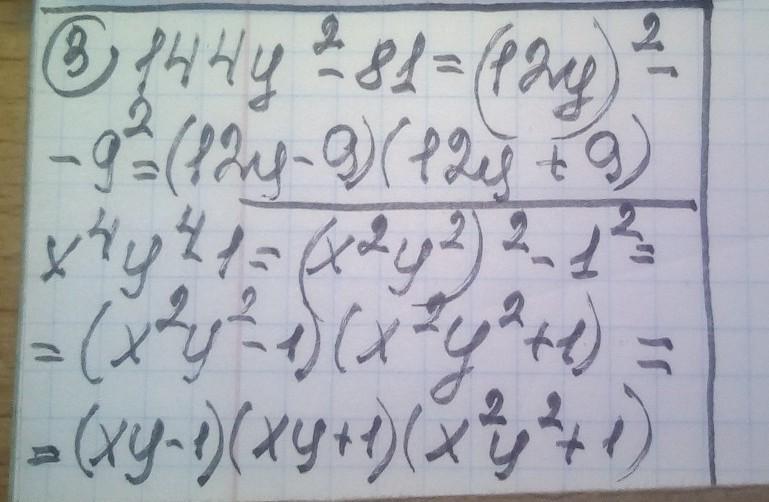 ③ 144y² - 81 = (12y)² -
- 9² = (12y - 9)(12y + 9)
x⁴y⁴1 = (x²y²)² - 1² =
= (x²y² - 1)(x²y² + 1) =
= (xy - 1)(xy + 1)(x²y² + 1)